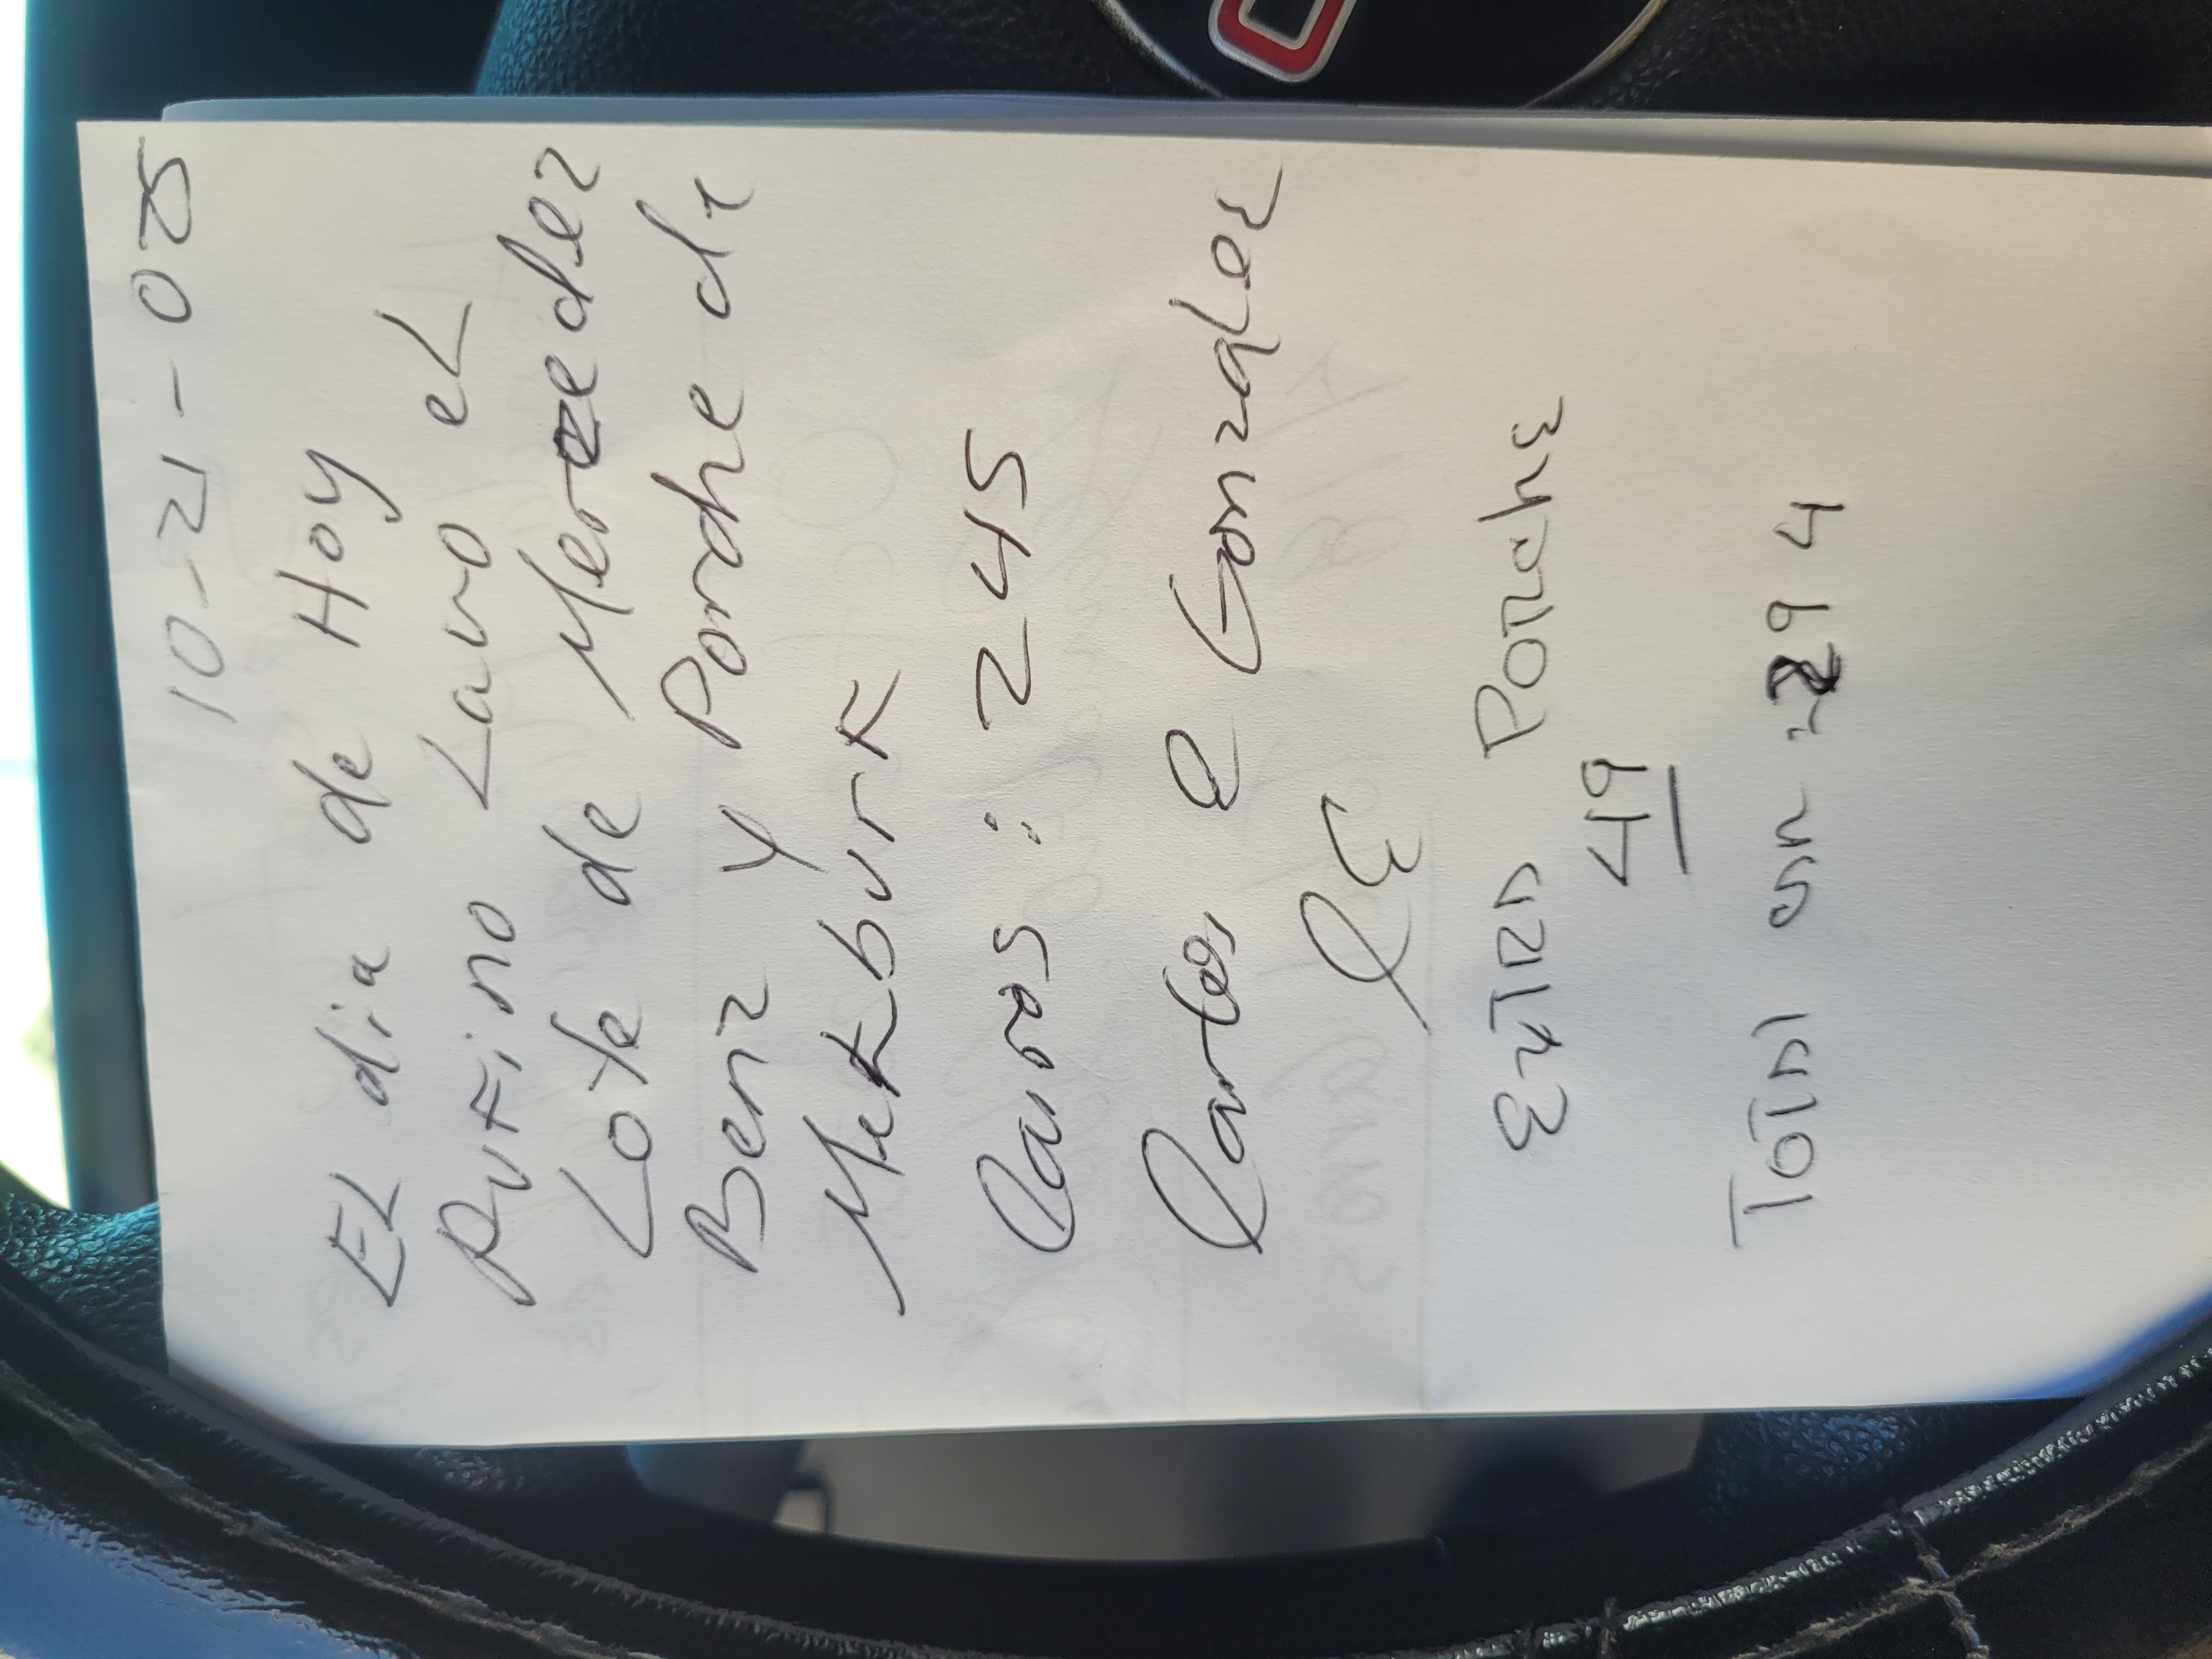 10-21-025
EL dia de Hoy
Rufino Lavo eL
Lote de Mercedez
Benz y Porche de
Mekburk
Carros : 245
Carlos E Gonzalez
CE
Extra Porche
49
Total un : 294